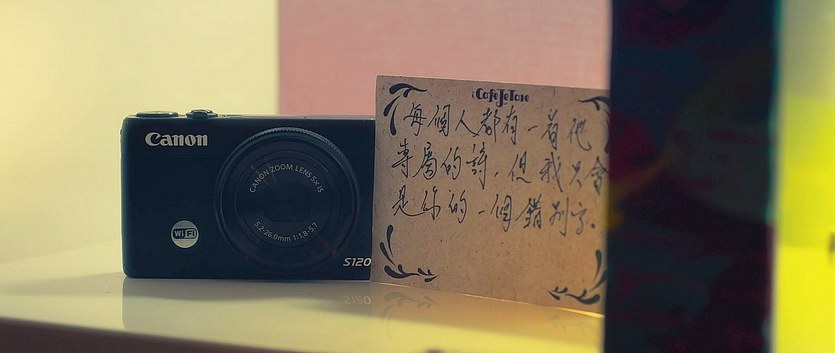 Canon
CANON ZOOM LENS 5×IS
5.2-26.0mm 1:1.8-5.7
WiFi
S120
Café JeTaime
每個人都有一首他
專屬的詩，但我只會
是你的一個錯別字.